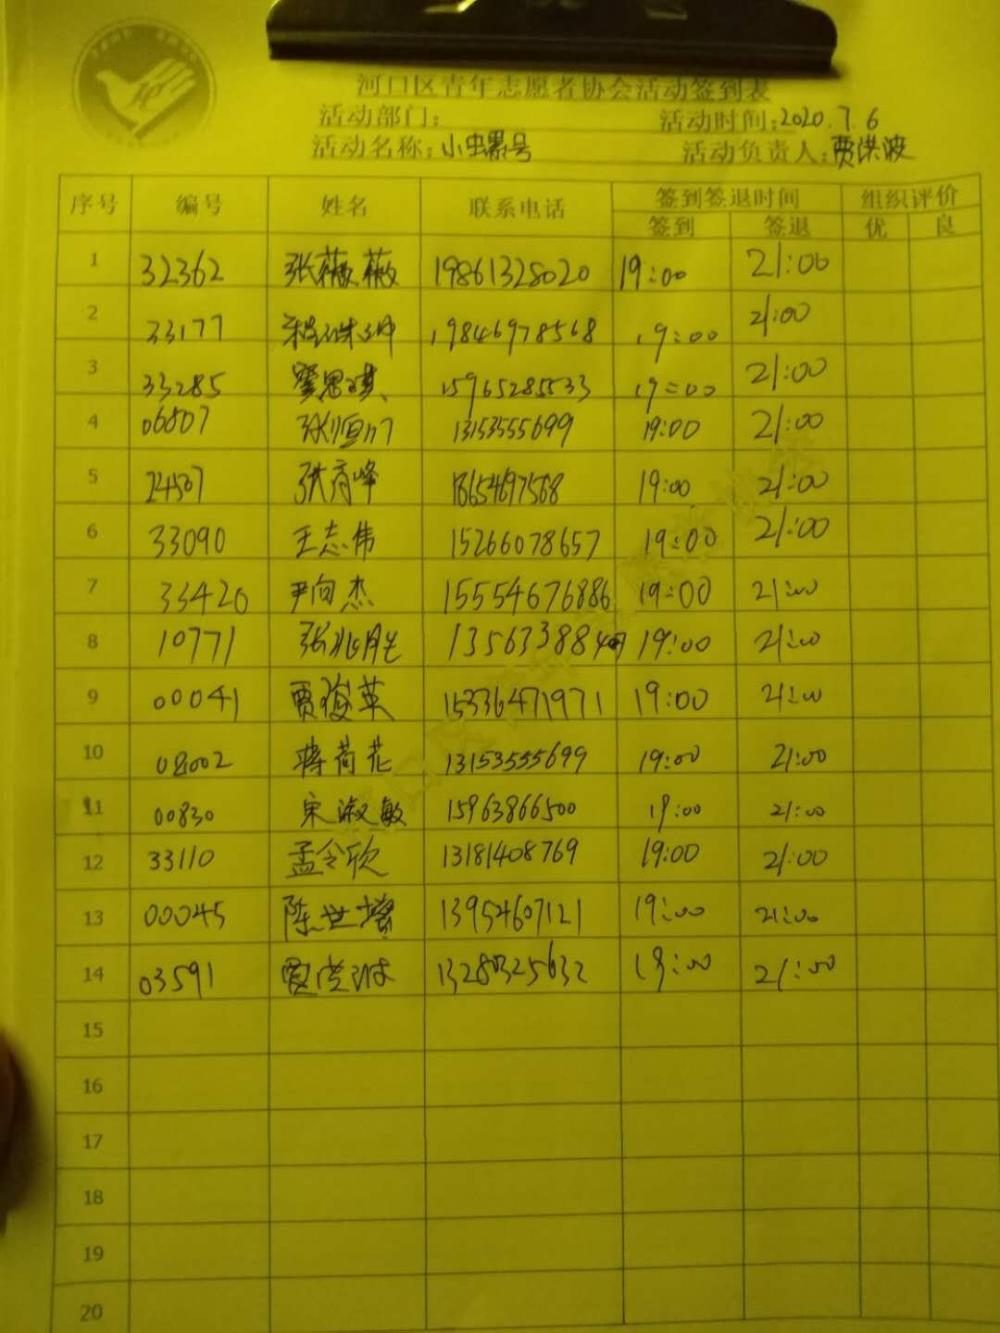 河口区青年志愿者协会活动签到表
活动部门: 活动时间:2020.7.6
活动名称:小虫累号 活动负责人:贾洪波
序号 编号 姓名 联系电话 签到签退时间 组织评价
签到 签退 优 良
1 32362 张薇薇 19861328020 19:00 21:00
2 33177 19846978568 19:00 21:00
3 33285 窦思琪 15965285533 19:00 21:00
4 06807 张恒 13153555699 19:00 21:00
5 24507 张育峰 18654697568 19:00 21:00
6 33090 王志伟 15266078657 19:00 21:00
7 33420 尹向杰 15554676886 19:00 21:00
8 10771 张兆胜 19:00 21:00
9 00041 贾俊英 15336471971 19:00 21:00
10 08002 蒋荷花 13153555699 19:00 21:00
11 00830 宋淑敏 15963866500 19:00 21:00
12 33110 孟令欣 13181408769 19:00 21:00
13 00045 陈世 13954607121 19:00 21:00
14 03591 贾洪波 13280325632 19:00 21:00
15
16
17
18
19
20